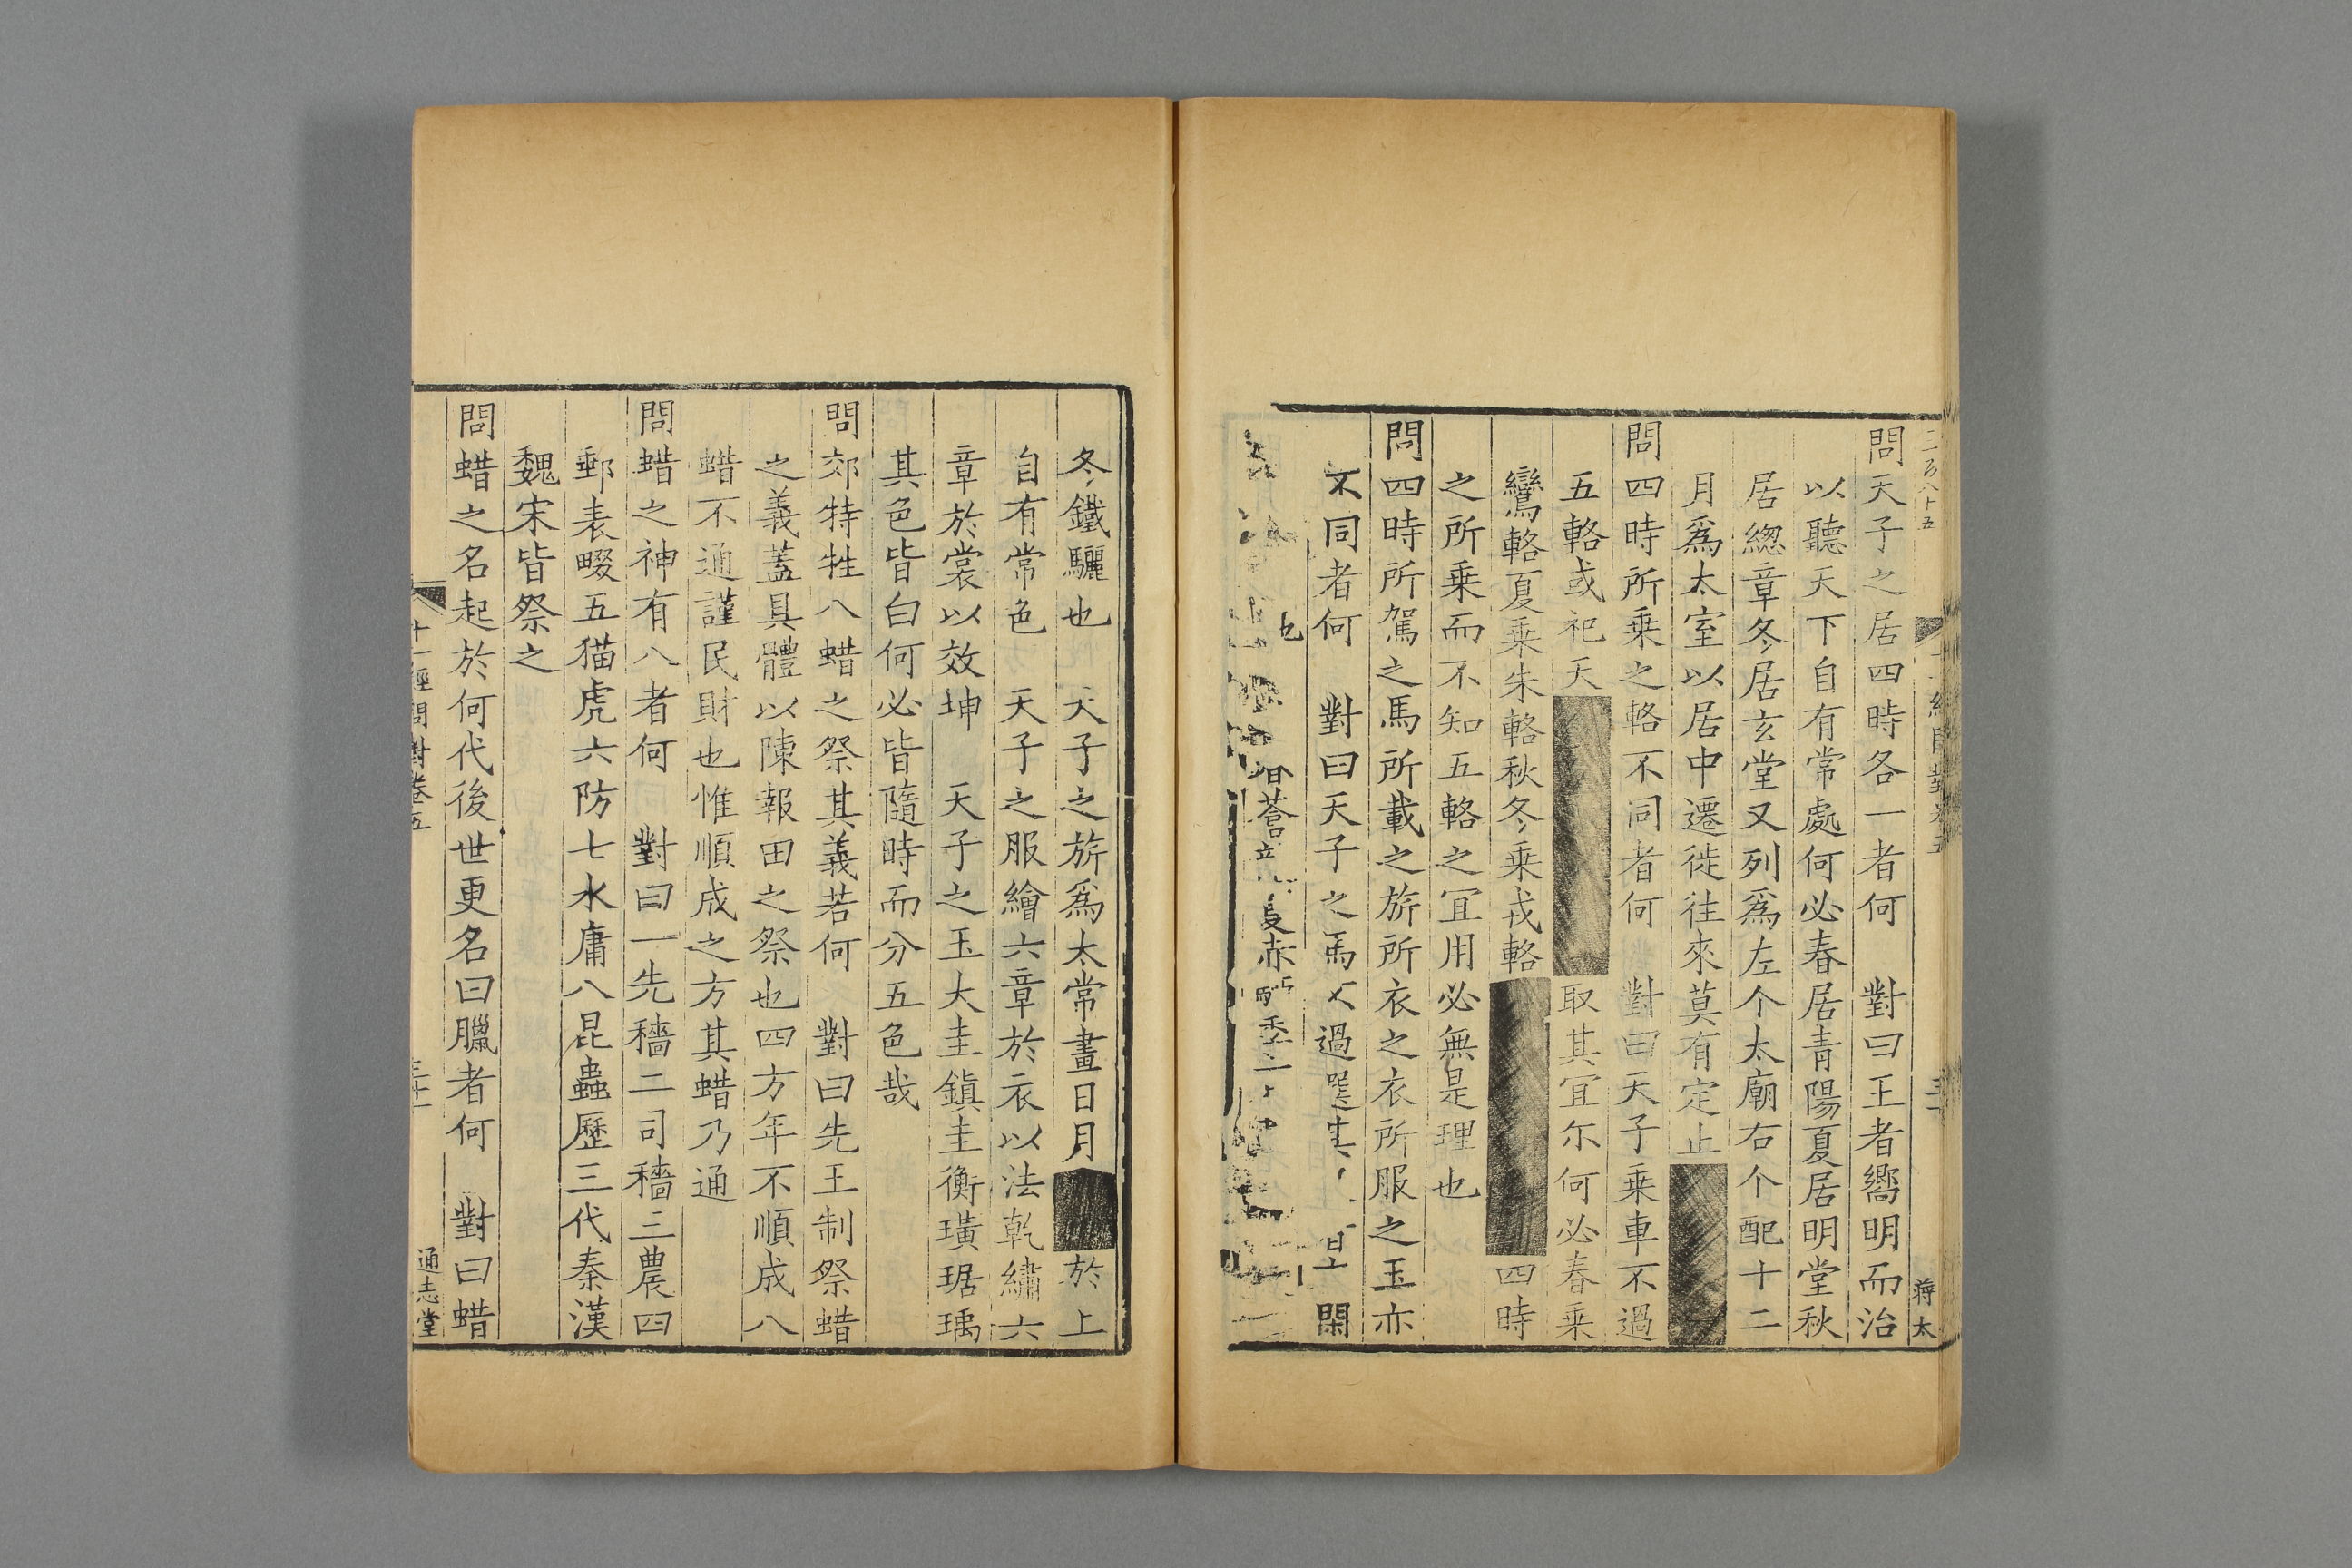 問天子之居四時各一者何　對曰王者嚮明而治
以聽天下自有常處何必春居青陽夏居明堂秋
居總章冬居玄堂又列爲左个太廟右个配十二
月爲太室以居中遷徙往來莫有定止
問四時所乗之輅不同者何　對曰天子乗車不過
五輅或祀天取其宜尓何必春乗
鸞輅夏乗朱輅秋冬乗戎輅四時
之所乗而不知五輅之宜用必無是理也
問四時所駕之馬所載之旂所衣之衣所服之玉亦
不同者何　對曰天子之馬過閑
蒼赤
冬鐵驪也　天子之旂爲太常畫日月於上
自有常色　天子之服繪六章於衣以法乾繡六
章於裳以效坤　天子之玉大圭鎮圭衡璜琚瑀
其色皆白何必皆隨時而分五色哉
問郊特牲八蜡之祭其義若何　對曰先王制祭蜡
之義蓋具體以陳報田之祭也四方年不順成八
蜡不通謹民財也惟順成之方其蜡乃通
問蜡之神有八者何　對曰一先穡二司穡三農四
郵表畷五猫虎六防七水庸八昆蟲歷三代秦漢
魏宋皆祭之
問蜡之名起於何代後世更名曰臘者何　對曰蜡
十一經問對卷五
通志堂